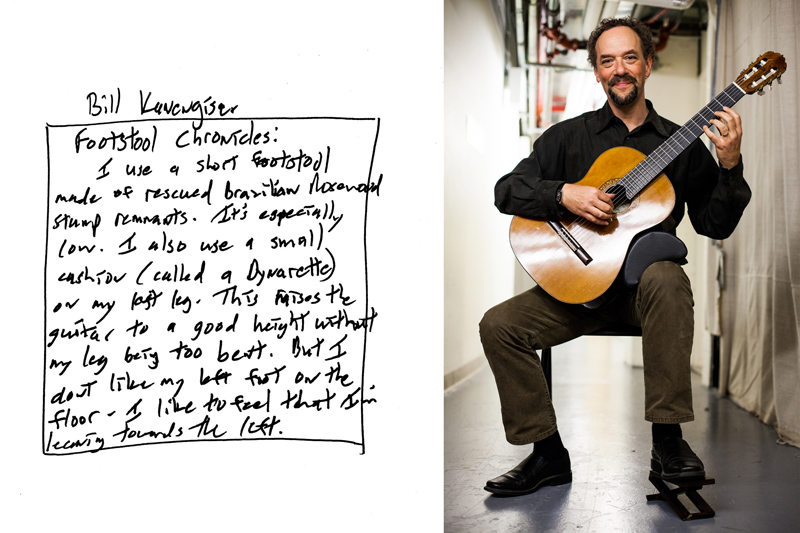 Bill Kanengiser
Footstool Chronicles:
I use a short footstool
made of rescued Brazilian Rosewood
stump remnants. It's especially
low. I also use a small
cushion (called a Dynarette)
on my left leg. This raises the
guitar to a good height without
my leg being too bent. But I
don't like my left foot on the
floor - I like to feel that I'm
leaning towards the left.